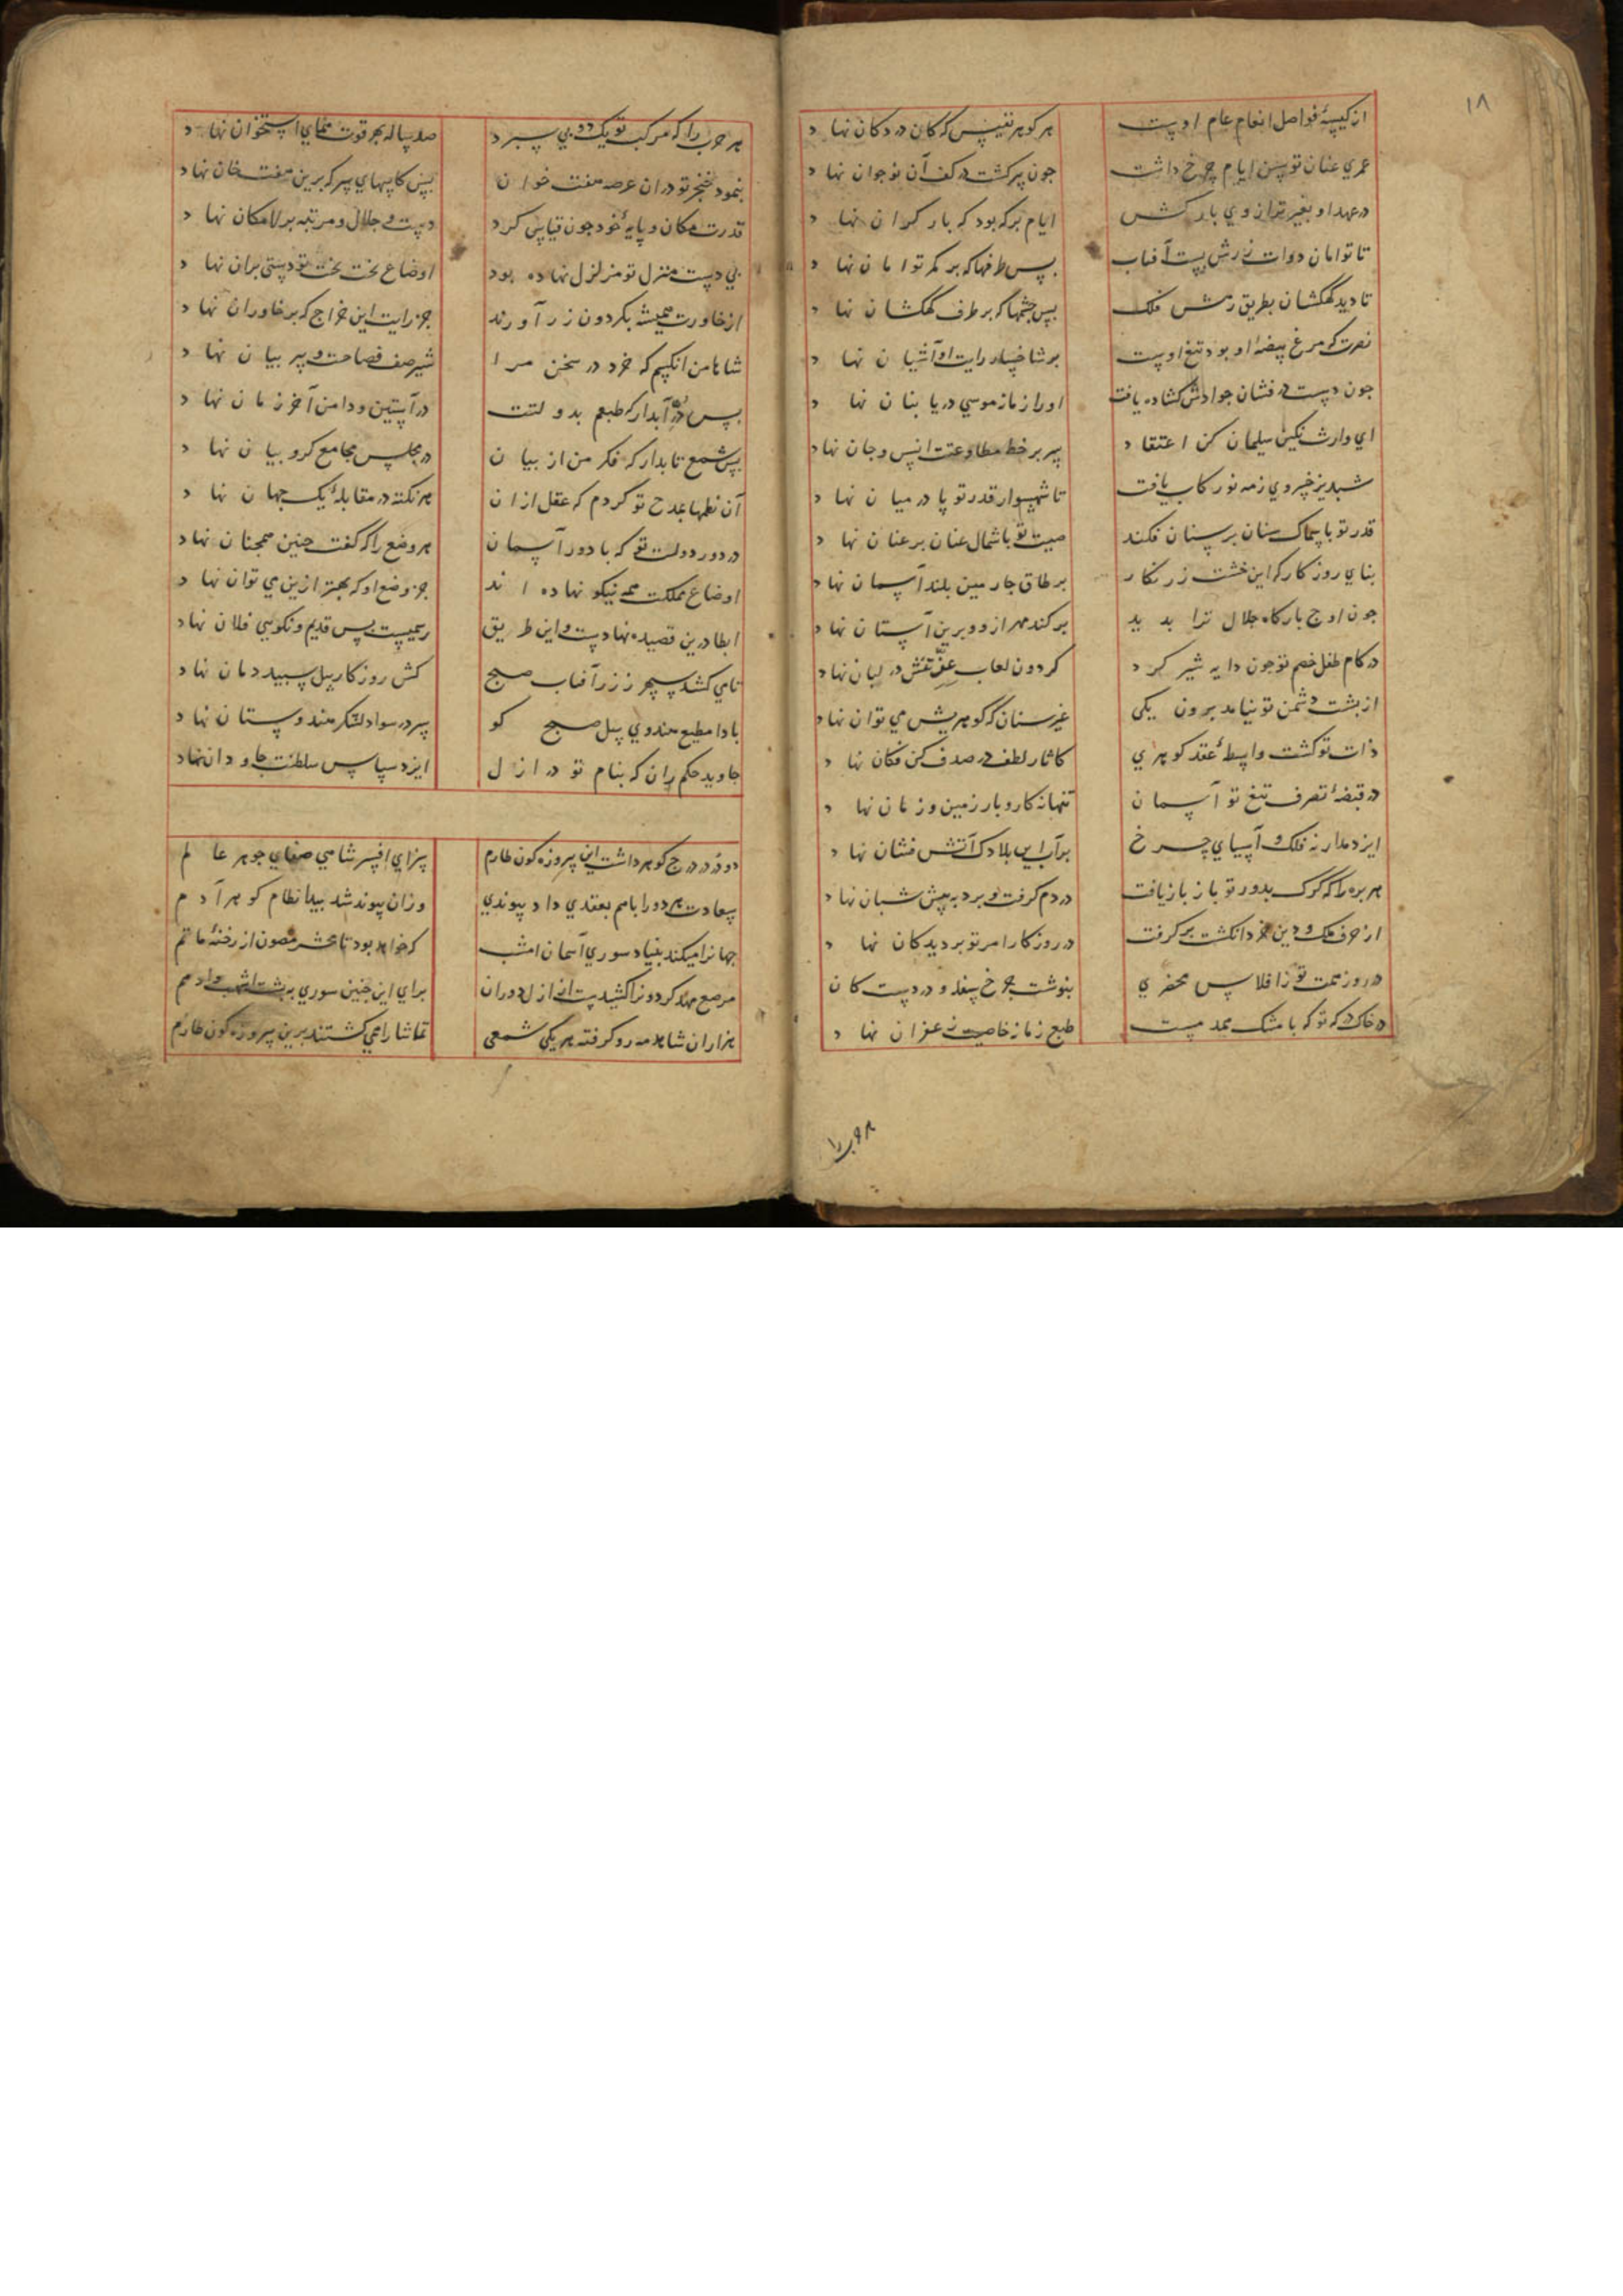 ١٨
از کیسهٔ فواضل انعام عام اوست هر گوهر نفیس که کان در دکان نهاد
عمری عنان توسن ایام چرخ داشت چون پیر گشت در کف آن نوجوان نهاد
در عهد او بغیر ترازوی بارکش ایام بر که بود که بار گران نهاد
تا توامان دوات زرش بست آفتاب بس طرفها که بر کمر توامان نهاد
تا دید کهکشان بطریق رهش فلک بس چشمها که بر طرف کهکشان نهاد
نصرت که مرغ بیضهٔ او بود تیغ اوست بر شاخسار رایت او آشیان نهاد
چون دست در فشان جوادش گشاده یافت او راز ناز موسی دریا بنان نهاد
ای وارث نگین سلیمان کن اعتقاد سر بر خط مطاوعتت انس و جان نهاد
شبدیز خسروی ز مه نو رکاب یافت تا شهسوار قدر تو پا در میان نهاد
قدر تو با سماک سنان بر سنان فکند صیت تو با شمال عنان بر عنان نهاد
بنای روزگار که این خشت زرنگار بر طاق چارمین بلند آسمان نهاد
چون اوج بارگاه جلال ترا بدید برکند مهر ازو و برین آستان نهاد
در کام طفل خصم تو چون دایه شیر کرد گردون لعاب در لبان نهاد
از پشت دشمن تو نیامد برون یکی غیر سنان که گوهریش می توان نهاد
ذات تو گشت واسطهٔ عقد گوهری کاثار لطف در صدف کن فکان نهاد
در قبضهٔ تصرف تیغ تو آسمان تنها نه کار و بار زمین و زمان نهاد
ایزد مدار نه فلک و آسیای چرخ بر آب این بلارک آتش فشان نهاد
هر بره را که گرگ بدور تو باز یافت در دم گرفت و برد به پیش شبان نهاد
از حرف ملک و دین خرد انگشت بر گرفت در روزگار امر تو بر دیدگان نهاد
در روز همت تو ز افلاس محضری بنوشت چرخ سفله و در دست کان نهاد
در خاک در که تو که با مشک همدمست طبع زمانه خاصیت زعفران نهاد
هر حرب را که مرکب تو یک دو پی سپرد صد ساله بهر قوت همای استخوان نهاد
بنمود خنجر تو دران عرصه هفت خوان بس کاسهای سر که برین هفت خان نهاد
قدرت مکان و پایهٔ خود چون قیاس کرد دست جلال و مرتبه بر لامکان نهاد
بی دست منزل تو متزلزل نهاده بود اوضاع تخت بخت تو دستی بران نهاد
از خاورت همیشه بگردون زر آورند جز رایت این خراج که بر خاوران نهاد
شاها من آنکسم که خرد در سخن مرا شیر صف فصاحت و ببر بیان نهاد
بس در آبدار که طبعم بدولتت در آستین و دامن آخر زمان نهاد
بس شمع تابدار که فکر من از بیان در مجلس مجامع کروبیان نهاد
آن نظمها بمدح تو کردم که عقل ازان هر نکته در مقابلهٔ یک جهان نهاد
در دور دولت تو که با دور آسمان هر وضع را که گفت چنین همچنان نهاد
اوضاع مملکت همه نیکو نهاده اند جز وضع او که بهتر ازین می توان نهاد
ایطا درین قصیده نهادست و این طریق رسمیست بس قدیم و نکویی فلان نهاد
تا می کشد سپهر ز زر آفتاب صبح کش روزگار پیل سپید دمان نهاد
بادا مطیع هندوی پیل صبح کو سر در سواد لشکر هندوستان نهاد
جاوید حکم ران که بنام تو در ازل ایزد سپاس سلطنت جاودان نهاد
دو در در درج گوهر داشت این پیروزه گون طارم سزای افسر شاهی صفای جوهر عالم
سعادت هر دو را با هم بعقدی داد پیوندی وزان پیوند شد پیدا نظام گوهر آدم
جهانرا میکند بنیاد سوری آسمان امشب که خواهد بود تا محشر مصون از رخنهٔ ماتم
مرصع مهد گردونرا کشیدست از ازل دوران برای این چنین سوری به پشت اشهب و ادهم
هزاران شاهد مه رو گرفته هر یکی شمعی تماشا را همی گشتند برین پیروزه گون طارم